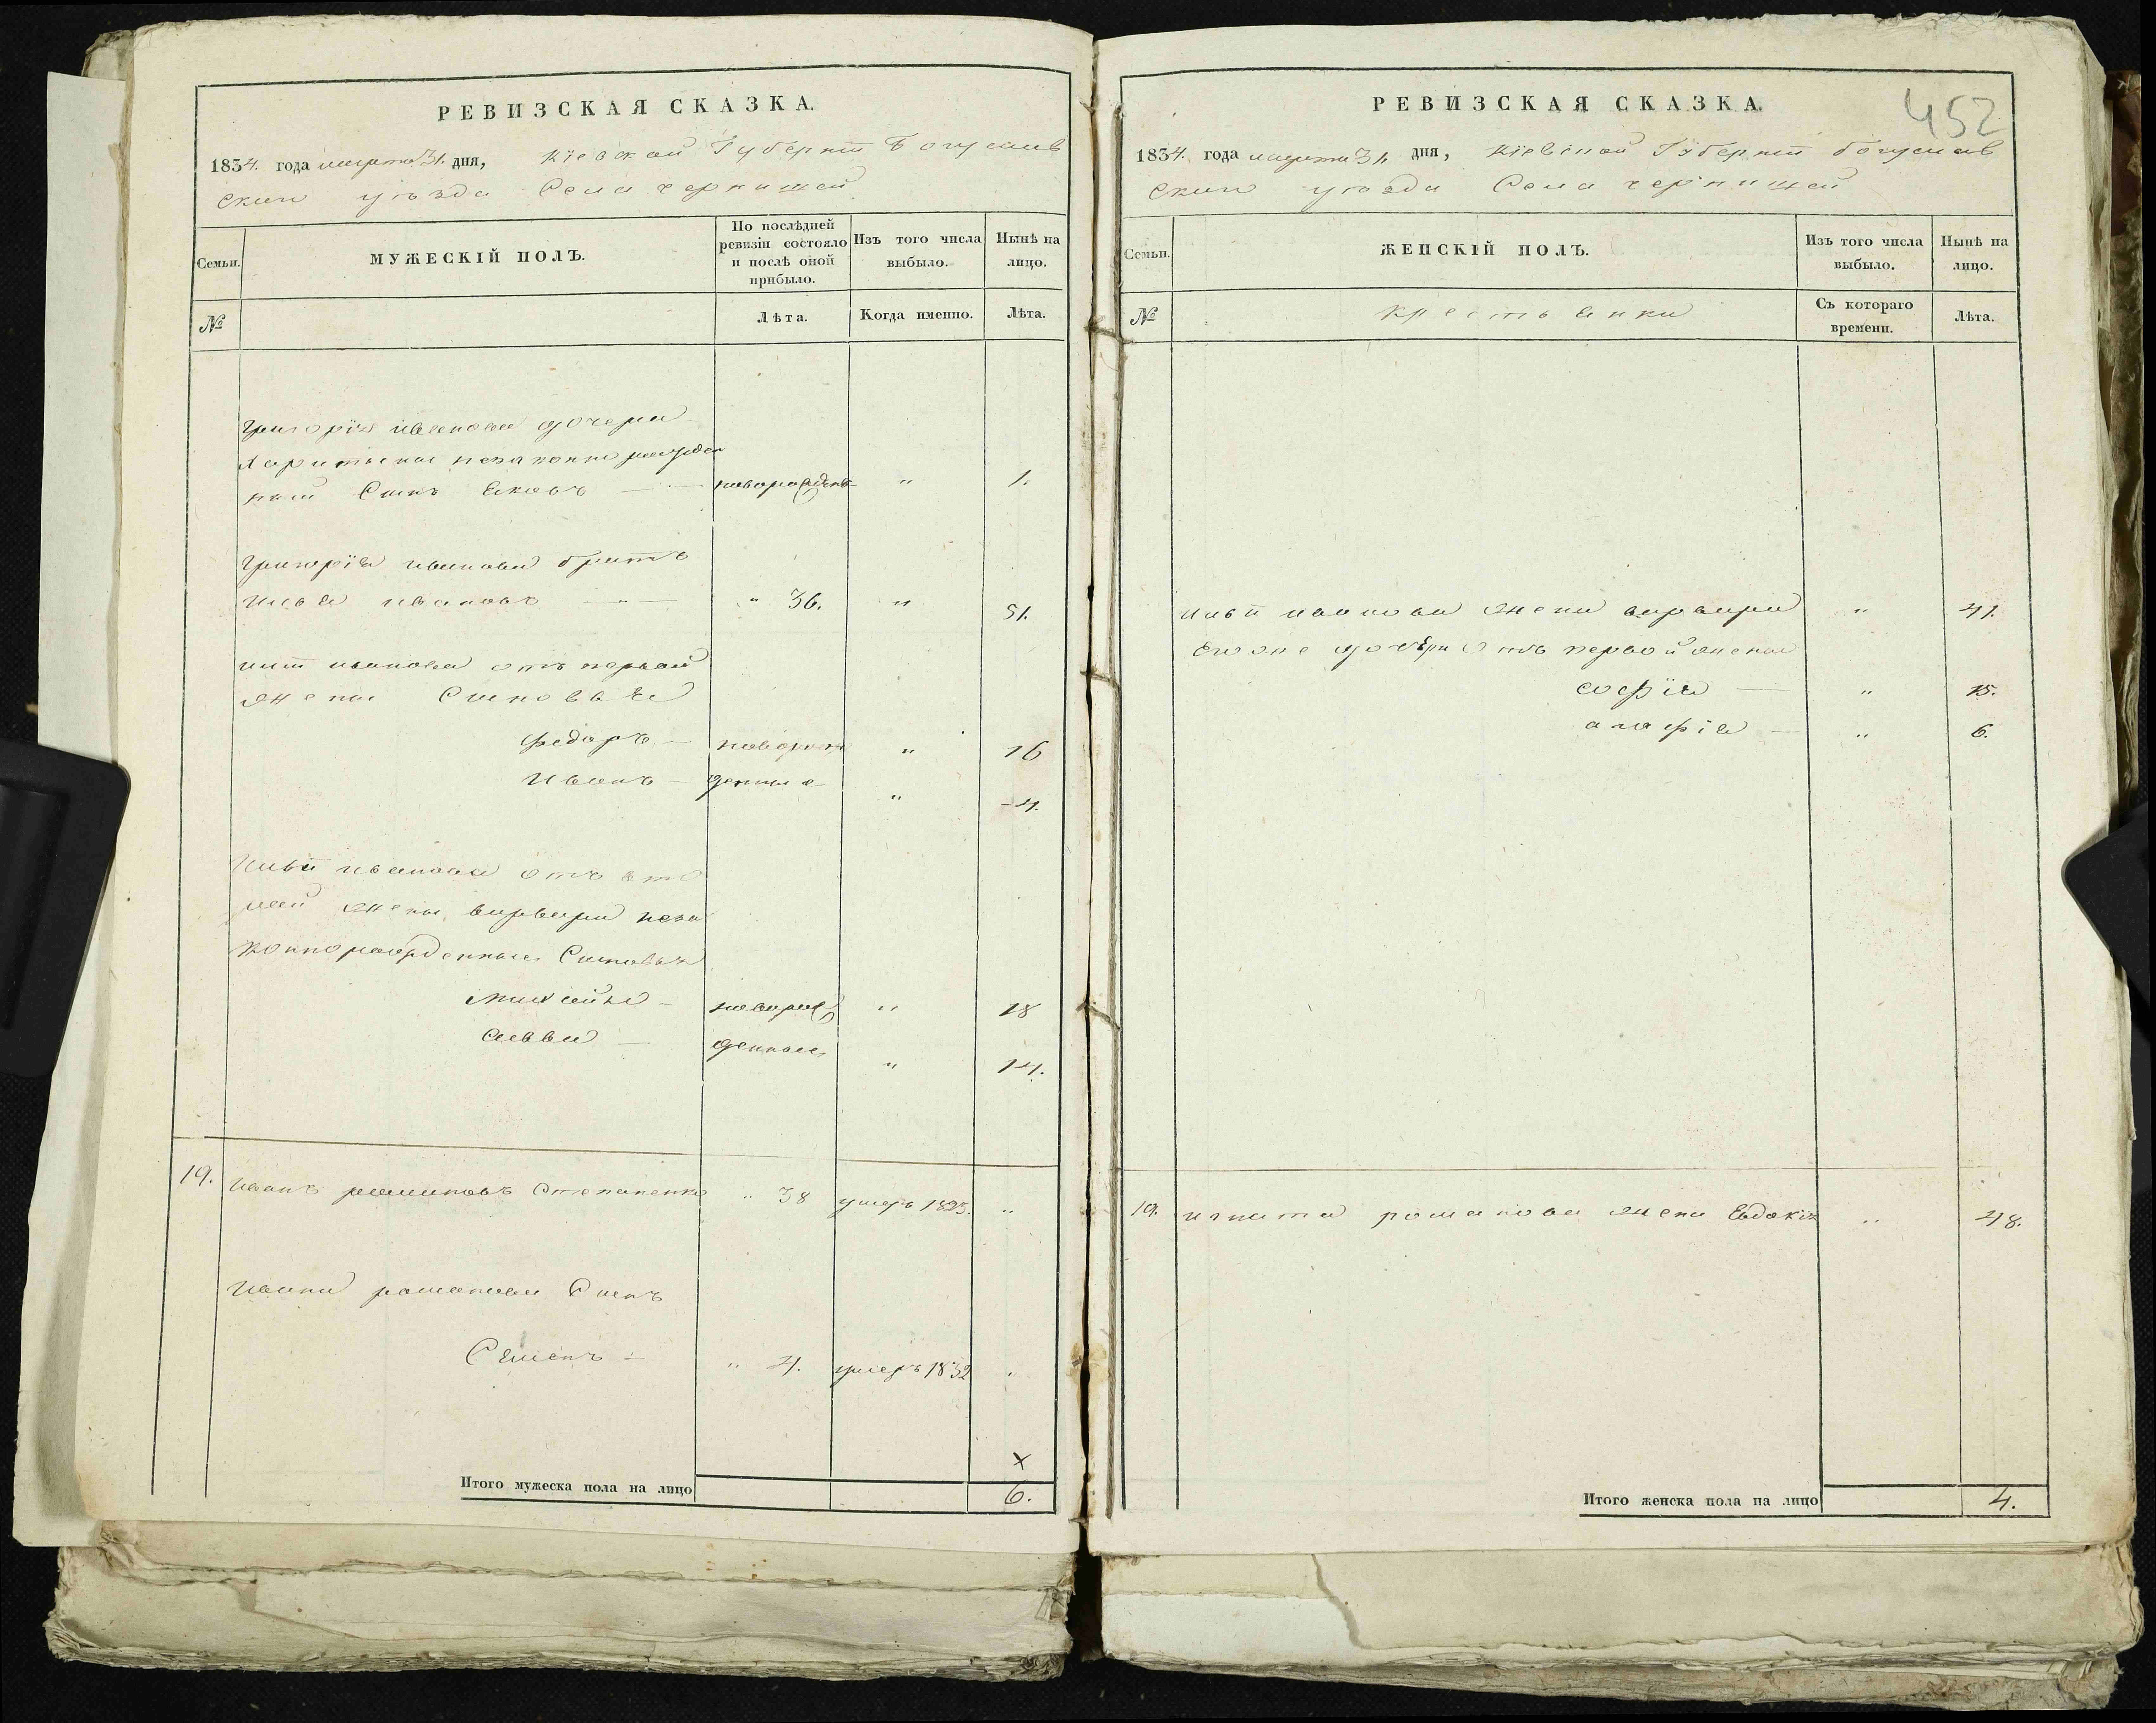 РЕВИЗСКАЯ СКАЗКА.
1834. года марта 31. дня, Кіевской Губерніи Богуслав
скаго уѣзда Села черпишей
Семьи.
МУЖЕСКІЙ ПОЛЪ.
По послѣдней ревизіи состояло и послѣ оной прибыло.
Изъ того числа выбыло.
Нынѣ на лицо.
№
Лѣта.
Когда именно.
Лѣта.
Григорія иванова дочери
Харитыны незаконно рожден
ный Сынъ Яковъ — новорожден " 1.
Григорія иванова братъ
Илья ивановъ — " 36. " 51.
Ильи иванова отъ первой
жены Сыновья
Федоръ — новорож " 16
Иванъ — денные " 4.
Ильи иванова отъ вто
рой жены варвары неза
коннорожденные Сыновья
Михайло — новорож " 18
Савва — денные " 14.
19. Иванъ романовъ Степаненко " 38 умеръ 1823. "
Ивана романова Сынъ
Семенъ — " 4. умеръ 1832 "
×
Итого мужеска пола на лицо 6.
452
РЕВИЗСКАЯ СКАЗКА.
1834. года марта 31. дня, Кіевской Губерніи богуслав
скаго уѣзда Села черпишей
Семьи.
ЖЕНСКІЙ ПОЛЪ.
Изъ того числа выбыло.
Нынѣ на лицо.
№
крестьянки
Съ котораго времени.
Лѣта.
Ильи иванова жена варвара " 41.
Его же дочери отъ первой жены
софія — " 15.
агафія — " 6.
19. игната романова жена Евдокія " 48.
Итого женска пола на лицо 4.